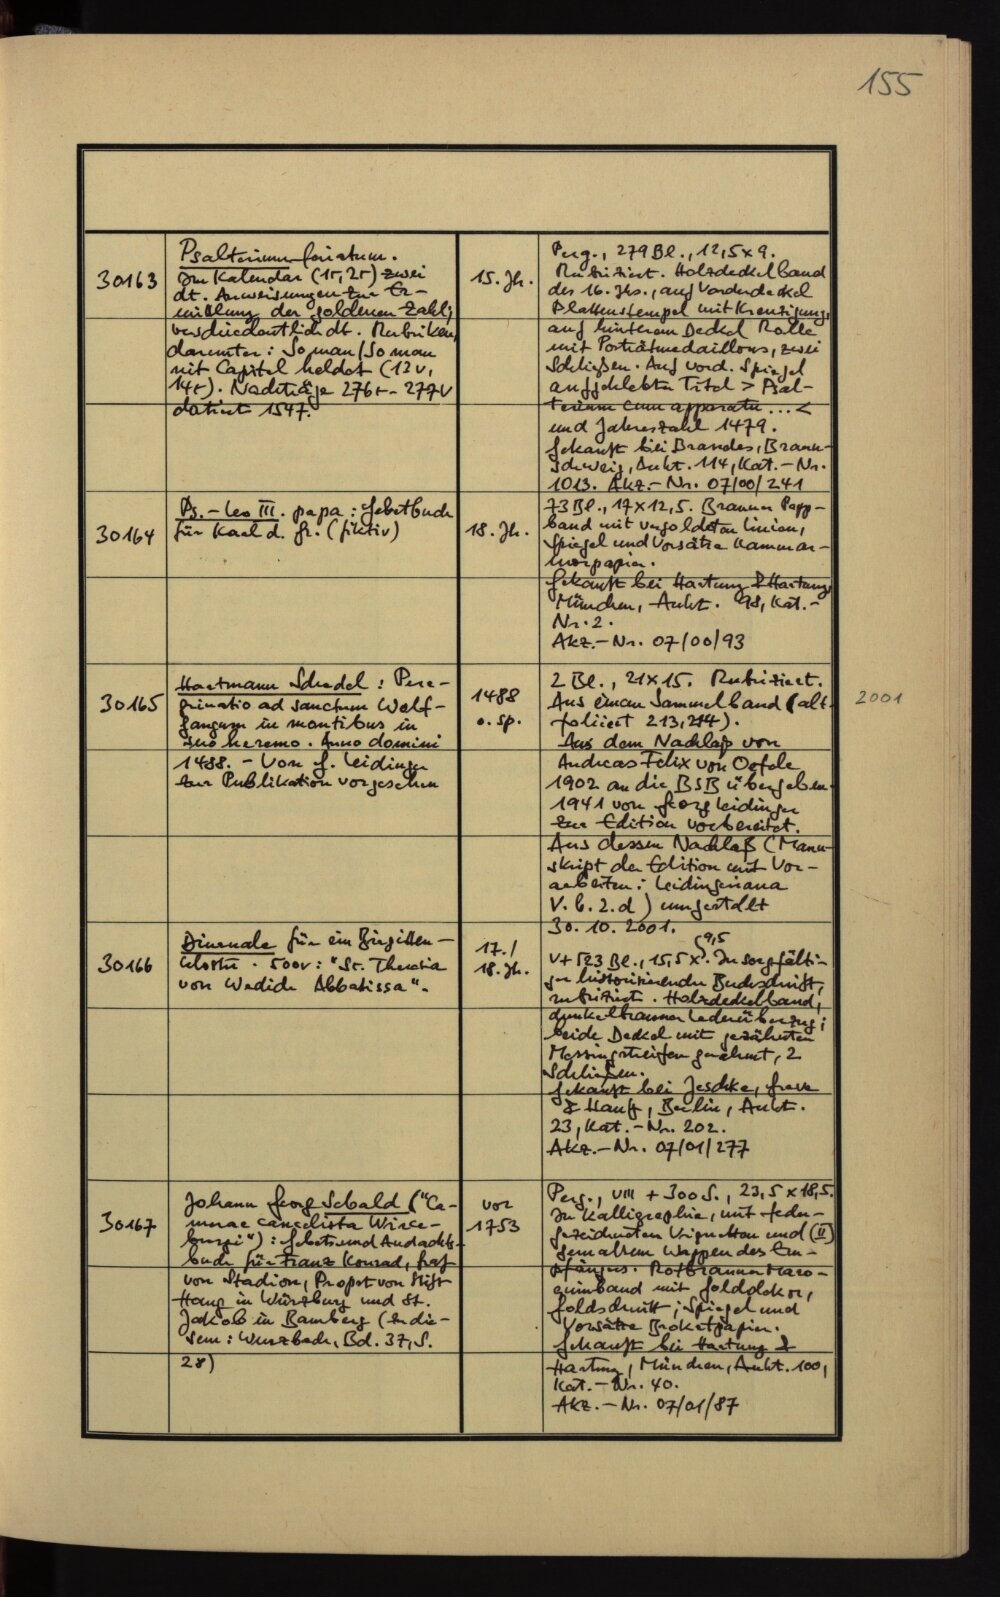 155
30163
Psalterium feriatum.
Im Kalendar (1r, 2r) zwei
dt. Anweisungen zur Er-
mittlung der goldenen Zahl;
verschiedentlich dt. Rubriken,
darunter: So man / So man
nit Capitel heldet (12v,
14r). Nachträge 276r - 277v
datiert 1547.
15. Jh.
Perg., 279 Bl., 12,5 x 9.
Rubriziert. Holzdeckelband
des 16. Jhs., auf Vorderdeckel
Plattenstempel mit Kreuzigung,
auf hinterem Deckel Rolle
mit Porträtmedaillons, zwei
Schließen. Auf vord. Spiegel
aufgeklebter Titel > Psal-
terium cum apparatu ... <
und Jahreszahl 1479.
Gekauft bei Brandes, Braun-
schweig, Aukt. 114, Kat.-Nr.
1013. Akz.-Nr. 07/00/241
30164
Ps.-Leo III. papa: Gebetbuch
für Karl d. Gr. (fiktiv)
18. Jh.
73 Bl., 17 x 12,5. Brauner Papp-
band mit vergoldeten Linien,
Spiegel und Vorsätze Kammar-
morpapier.
Gekauft bei Hartung & Hartung,
München, Aukt. 98, Kat.-
Nr. 2.
Akz.-Nr. 07/00/93
30165
Hartmann Schedel: Pere-
grinatio ad sanctum Wolf-
gangum in montibus in
suo heremo. Anno domini
1488. - Von G. Leidinger
zur Publikation vorgesehen
1488
o. sp.
2 Bl., 21 x 15. Rubriziert.
Aus einem Sammelband (alt-
foliiert 213, 214).
Aus dem Nachlaß von
Andreas Felix von Oefele
1902 an die BSB übergeben.
1941 von Georg Leidinger
zur Edition vorbereitet.
Aus dessen Nachlaß (Manu-
skript der Edition mit Vor-
arbeiten: Leidingeriana
V. b. 2. d) umgestellt
30. 10. 2001.
2001
30166
Diurnale für ein Birgitten-
kloster. 500v: "Sr. Theresia
von Wedich Abbatissa".
17./
18. Jh.
9,5
V + 523 Bl., 15,5 x . In sorgfälti-
ger historisierender Buchschrift,
rubriziert. Holzdeckelband,
dunkelbrauner Lederüberzug;
beide Deckel mit gezähnten
Messingstreifen gerahmt, 2
Schließen.
Gekauft bei Jeschke, Greve
& Hauff, Berlin, Aukt.
23, Kat.-Nr. 202.
Akz.-Nr. 07/01/277
30167
Johann Georg Sebald ("Ca-
merae cancelista Wirce-
burgi"): Gebets- und Andachts-
buch für Franz Konrad, Graf
von Stadion, Propst von Stift
Haug in Würzburg und St.
Jakob in Bamberg (zu die-
sem: Wurzbach, Bd. 37, S.
28)
vor
1753
Perg., VIII + 300 S., 23,5 x 18,5.
In Kalligraphie, mit feder-
gezeichneten Vignetten und (II)
gemaltem Wappen des Em-
pfängers. Rotbrauner Maro-
quinband mit Golddekor,
Goldschnitt; Spiegel und
Vorsätze Broketpapier.
Gekauft bei Hartung &
Hartung, München, Aukt. 100,
Kat.-Nr. 40.
Akz.-Nr. 07/01/87